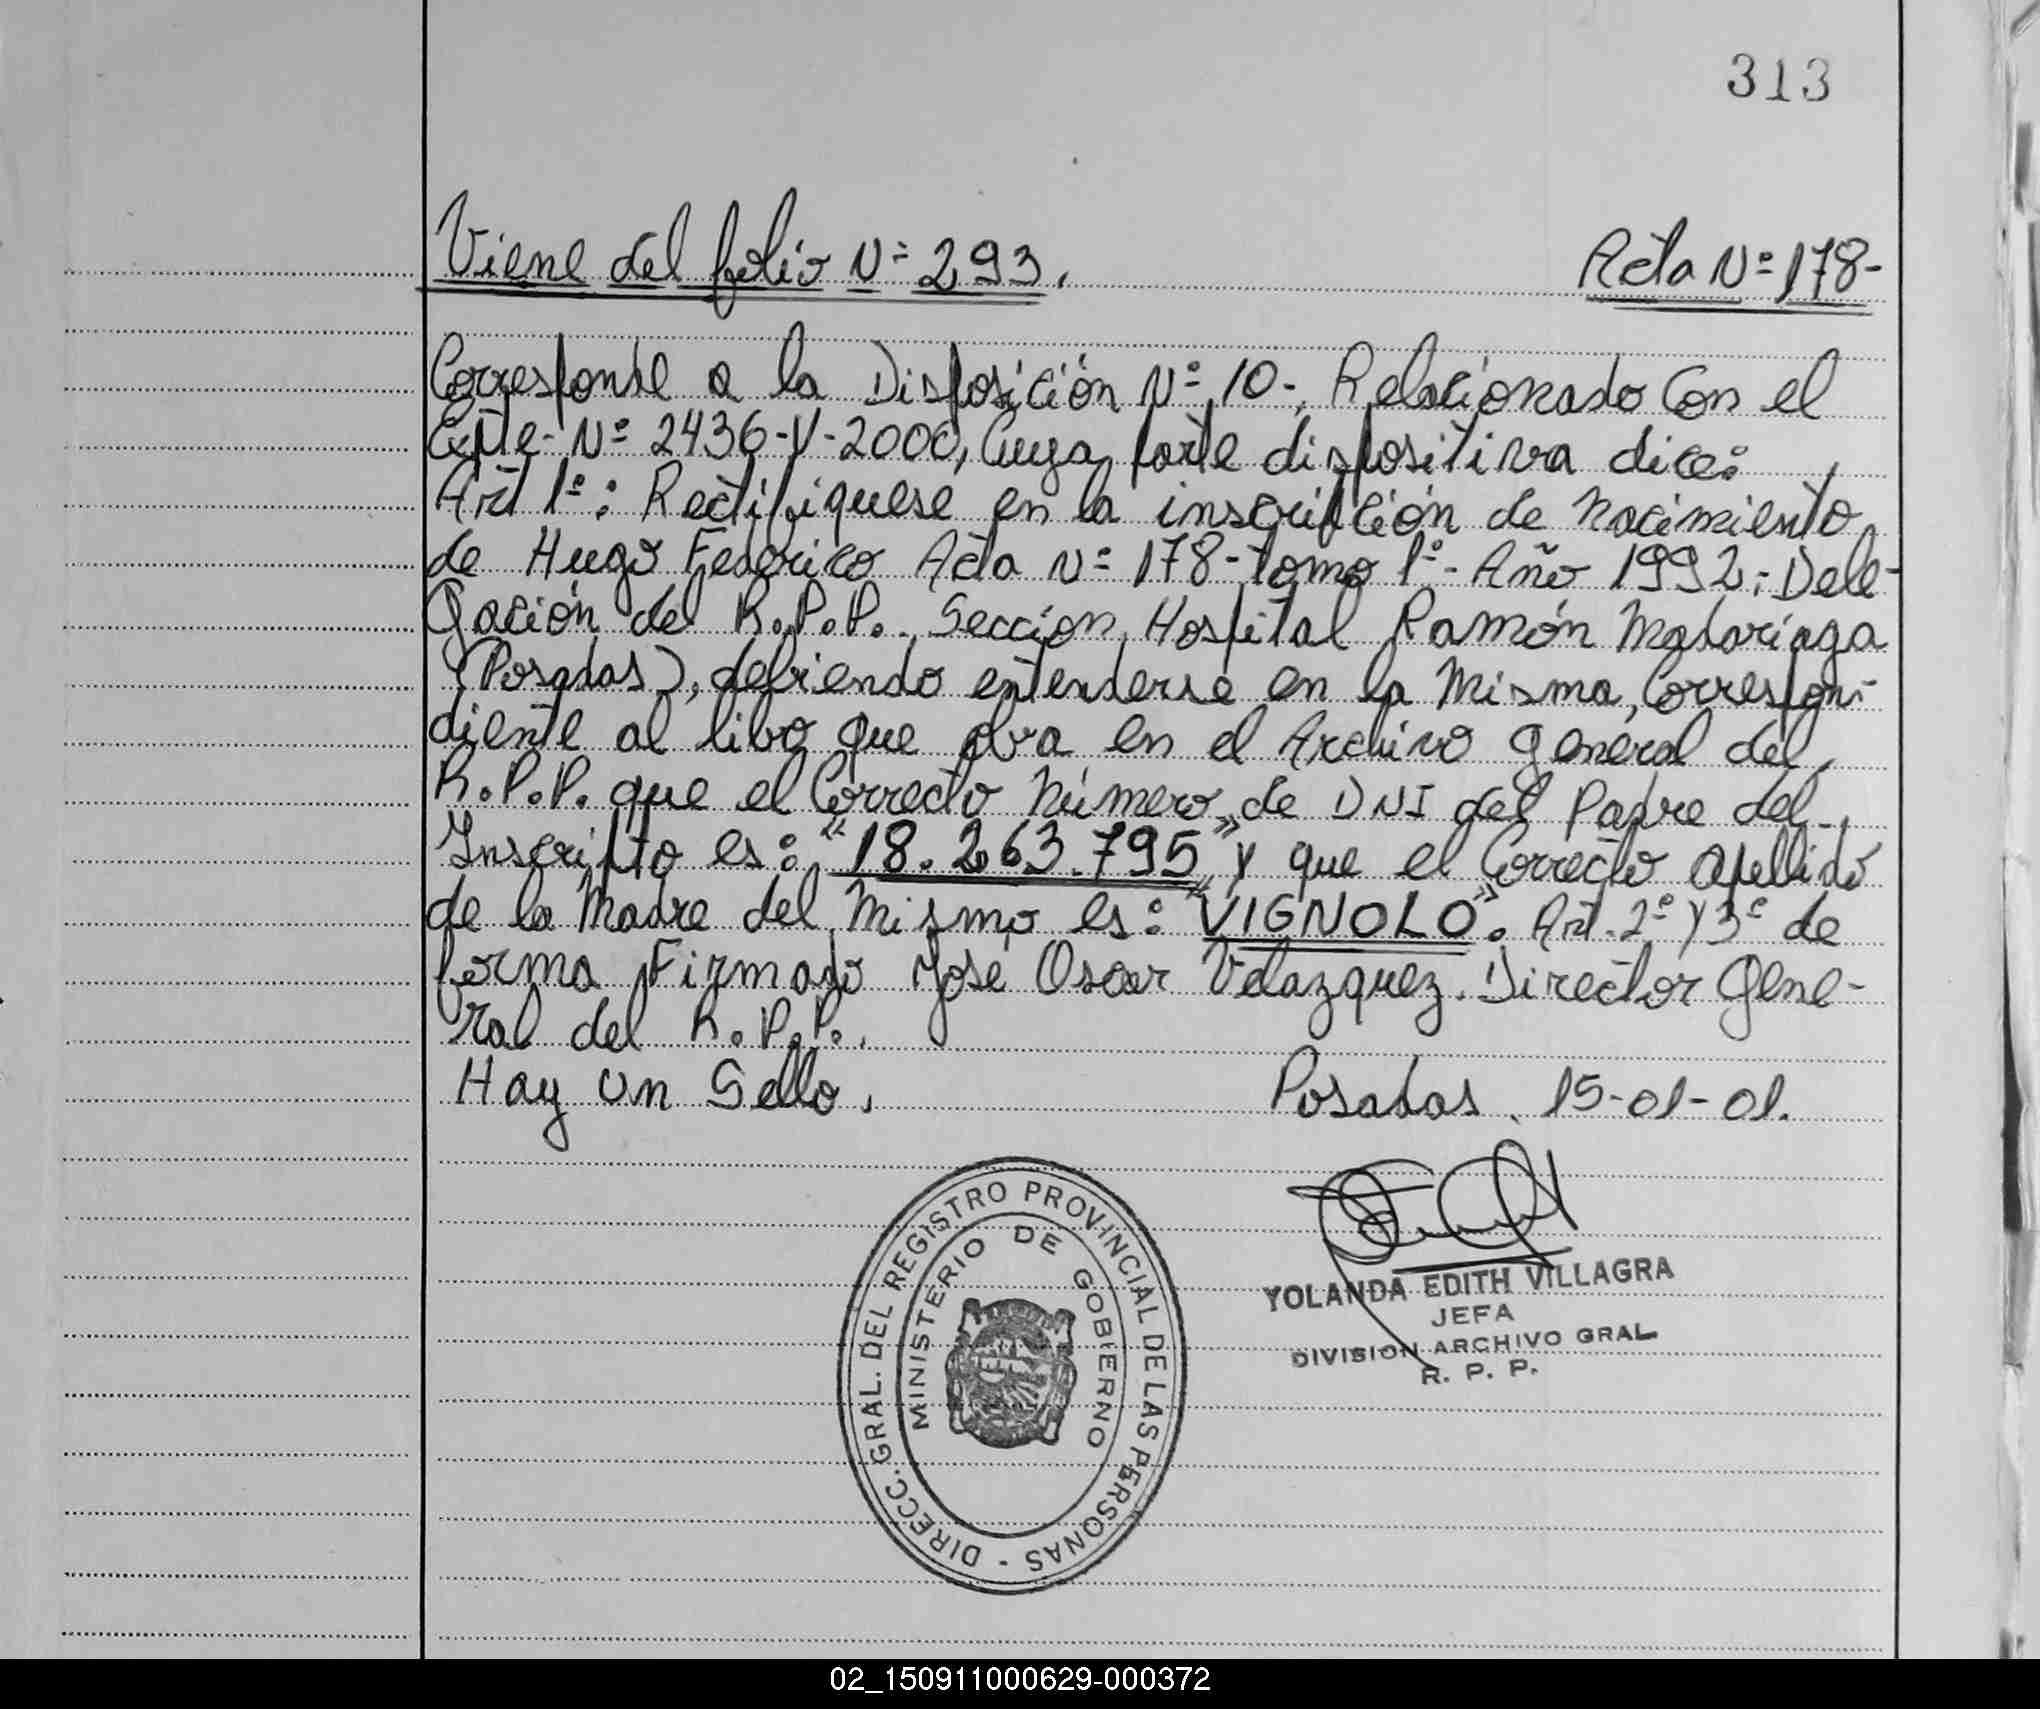 313
Viene del folio Nº 293. Acta Nº 178-
Corresponde a la Disposición Nº 10-. Relacionado Con el
Expte- Nº 2436-V-2000, Cuya parte dispositiva dice:
Art 1º: Rectifiquese en la inscripción de nacimiento
de Hugo Federico Acta Nº 178-Tomo 1º- Año 1992.- Dele-
gación del R.P.P.. Sección Hospital Ramón Madariaga
(Posadas), debiendo entenderse en la Misma, Correspon-
diente al libo que obra en el Archivo general del
R.P.P. que el Correcto Número de DNI del Padre del
Inscripto es: "18.263.795" y que el Correcto apellido
de la Madre del Mismo es: "VIGNOLO". Art. 2º y 3º de
forma Firmado José Oscar Velazquez. Director Gene-
ral del R.P.P..
Hay un Sello. Posadas, 15-01-01.
DIRECC. GRAL. DEL REGISTRO PROVINCIAL DE LAS PERSONAS -
MINISTERIO DE GOBIERNO
YOLANDA EDITH VILLAGRA
JEFA
DIVISION ARCHIVO GRAL
R. P. P.
02_150911000629-000372